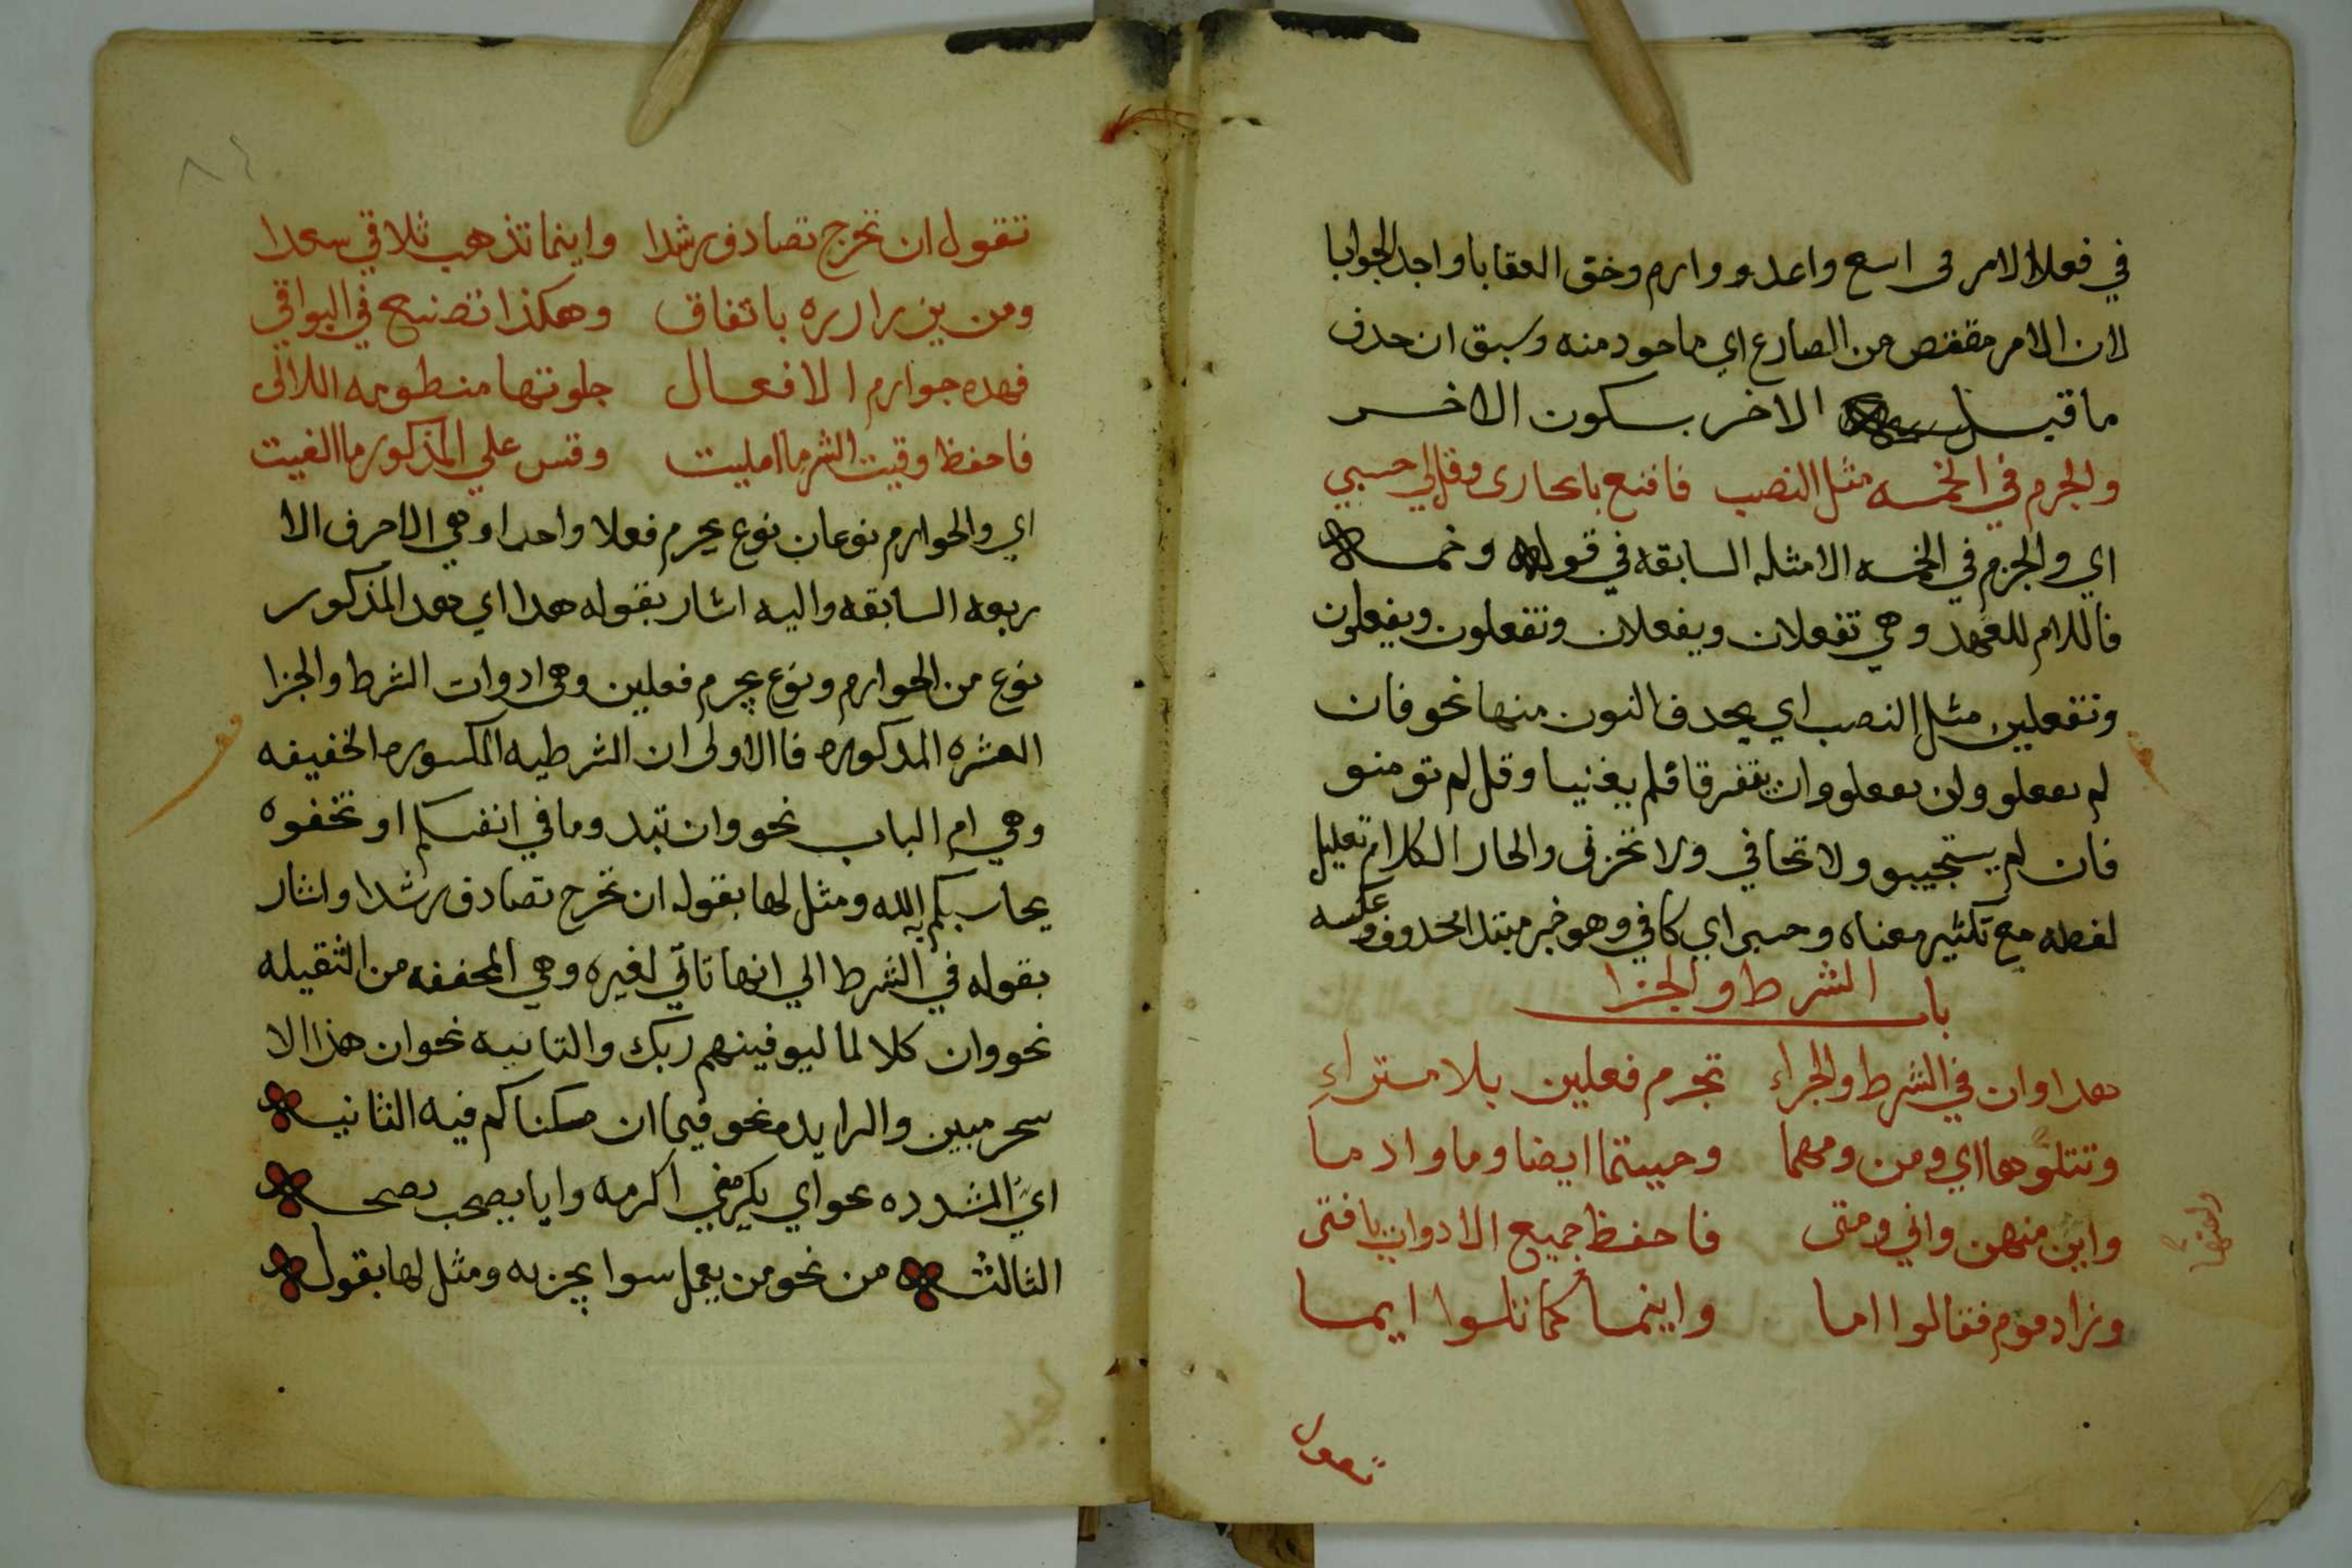 في فعلا الامر فى اسع واعدو وارم وخق العقابا واجد الجوابا
لان الامر مقتص من الصارع اي ماحود منه وسبق ان حدف
ما قبل الاخر بسكون الاخر
والجزم في الخمسه مثل النصب فاقنع بايجازى وقل لي حسبي
اي والجزم في الخمسه الامثله السابقه في قوله وخمسه
فاللام للعهد وهي تفعلان ويفعلان وتفعلون ويفعلون
وتفعلين مثل النصب اي بحدف النون منها نحو فان
لم يفعلو ولن يفعلو وان يتفرقا فلم يغنيا وقل لم تومنو
فان لم يستجيبو ولا تخافي ولا تحزنى والجار الكلام تعليل
لفطه مع تكثير معناه وحسبى اي كافي وهو خبر مبتدا محدوف وعكسه
باب الشرط والجزا
هدا وان في الشرط والجزاء تجزم فعلين بلا مستراءِ
وتتلوها اي ومن ومهما وحيثما ايضا وما واد ما
واين منهن واني ومتى فاحفظ جميع الادوات يا فتى
وزاد قوم فقالوا اما واينما كما تلوا ايما
تقول
تقول ان تخرج تصادف رشدا واينما تذهب تلاقي سعدا
ومن يزر ازره باتفاق وهكذا تصنع في البواقي
فهده جوازم الافعال جلوتها منطومه اللالى
فاحفظ وقيت الشر ما امليت وقس علي المذكور ما الغيت
اي والجوازم نوعان نوع يجزم فعلا واحدا وهي الاحرف الا
ربعه السابقه واليه اشار بقوله هدا اي هدا المذكور
نوع من الجوازم ونوع يجزم فعلين وهي ادوات الشرط والجزا
العشره المدكوره فا الاولى ان الشرطيه المكسوره الخفيفه
وهي ام الباب نحو وان تبدو ما في انفسكم او تخفوه
يحاسبكم به الله ومثل لها بقوله ان تخرج تصادف رشدا واشار
بقوله في الشرط الي انها تاتي لغيره وهي المخففه من الثقيله
نحو وان كلا لما ليوفينهم ربك والنافيه نحو ان هذا الا
سحر مبين والزايده نحو فيما ان مكناكم فيه الثانيه
ايّ المشدده نحو اي يكرمني اكرمه وايا يصحب نصحبه
الثالثه من نحو من يعمل سوا يجز به ومثل لها بقوله